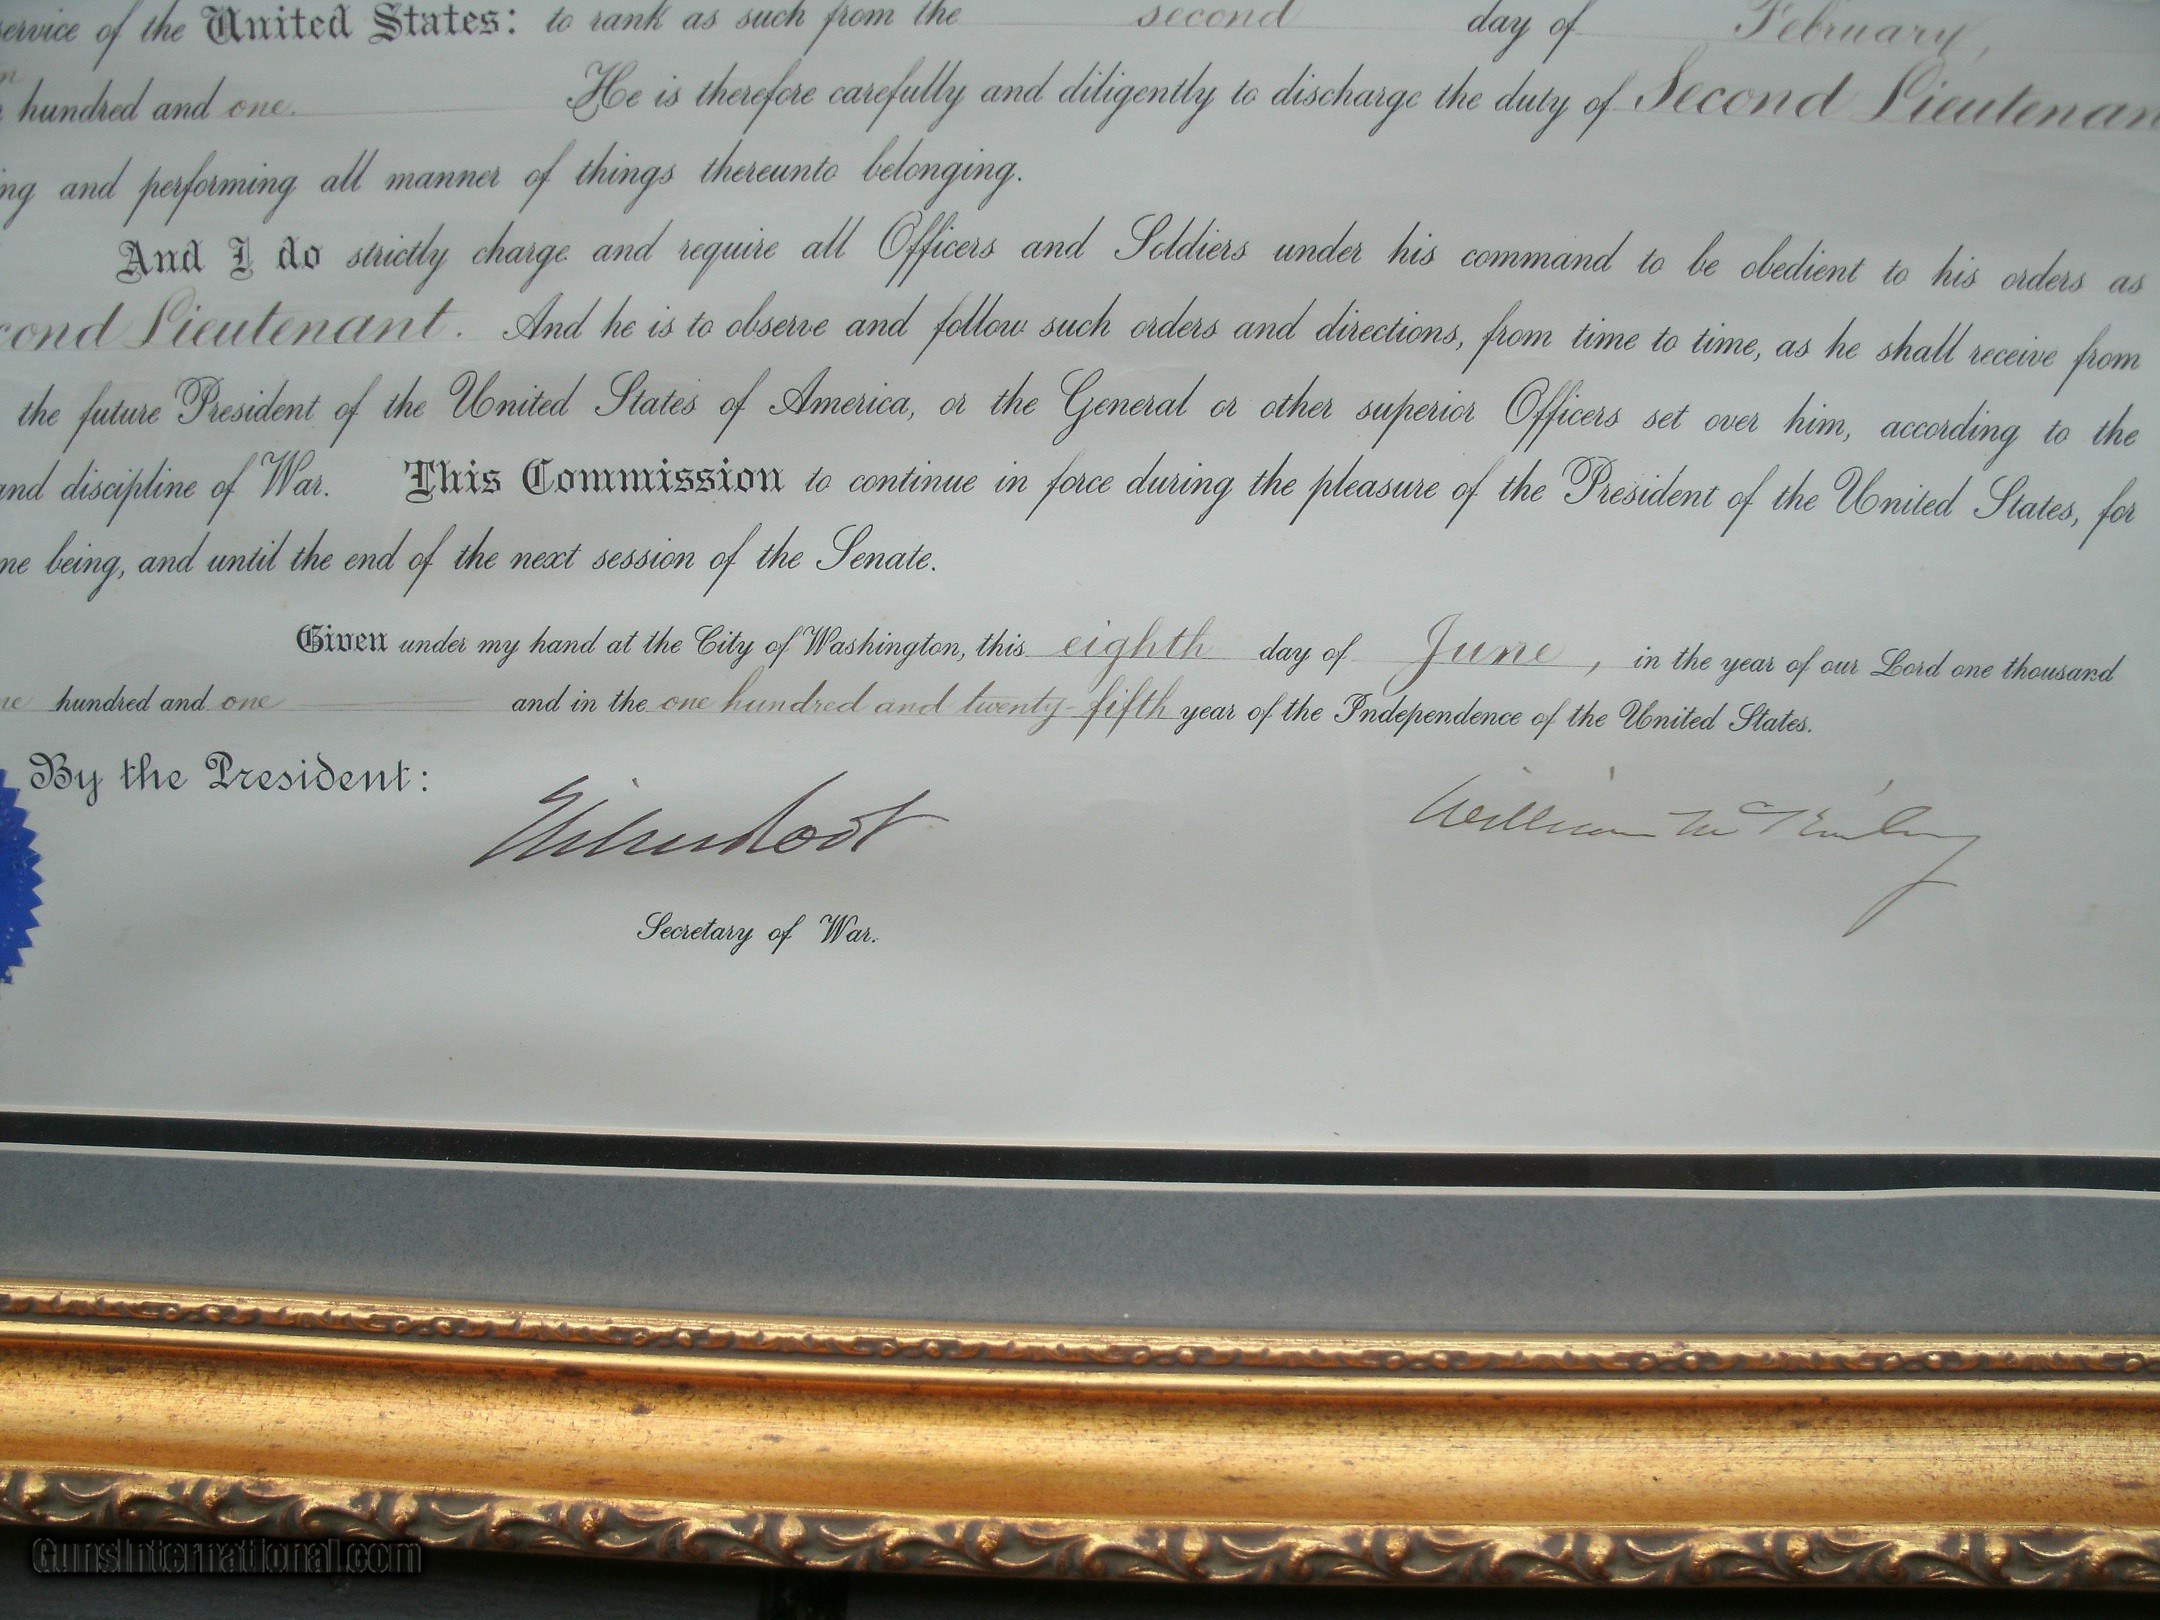 service of the United States: to rank as such from the second day of February,
hundred and one. He is therefore carefully and diligently to discharge the duty of Second Lieutenan
ing and performing all manner of things thereunto belonging.
And I do strictly charge and require all Officers and Soldiers under his command to be obedient to his orders as
cond Lieutenant. And he is to observe and follow such orders and directions, from time to time, as he shall receive from
the future President of the United States of America, or the General or other superior Officers set over him, according to the
and discipline of War. This Commission to continue in force during the pleasure of the President of the United States, for
me being, and until the end of the next session of the Senate.
Given under my hand at the City of Washington, this eighth day of June, in the year of our Lord one thousand
ne hundred and one and in the one hundred and twenty-fifth year of the Independence of the United States.
By the President:
Elihu Root William McKinley
Secretary of War.
GunsInternational.com